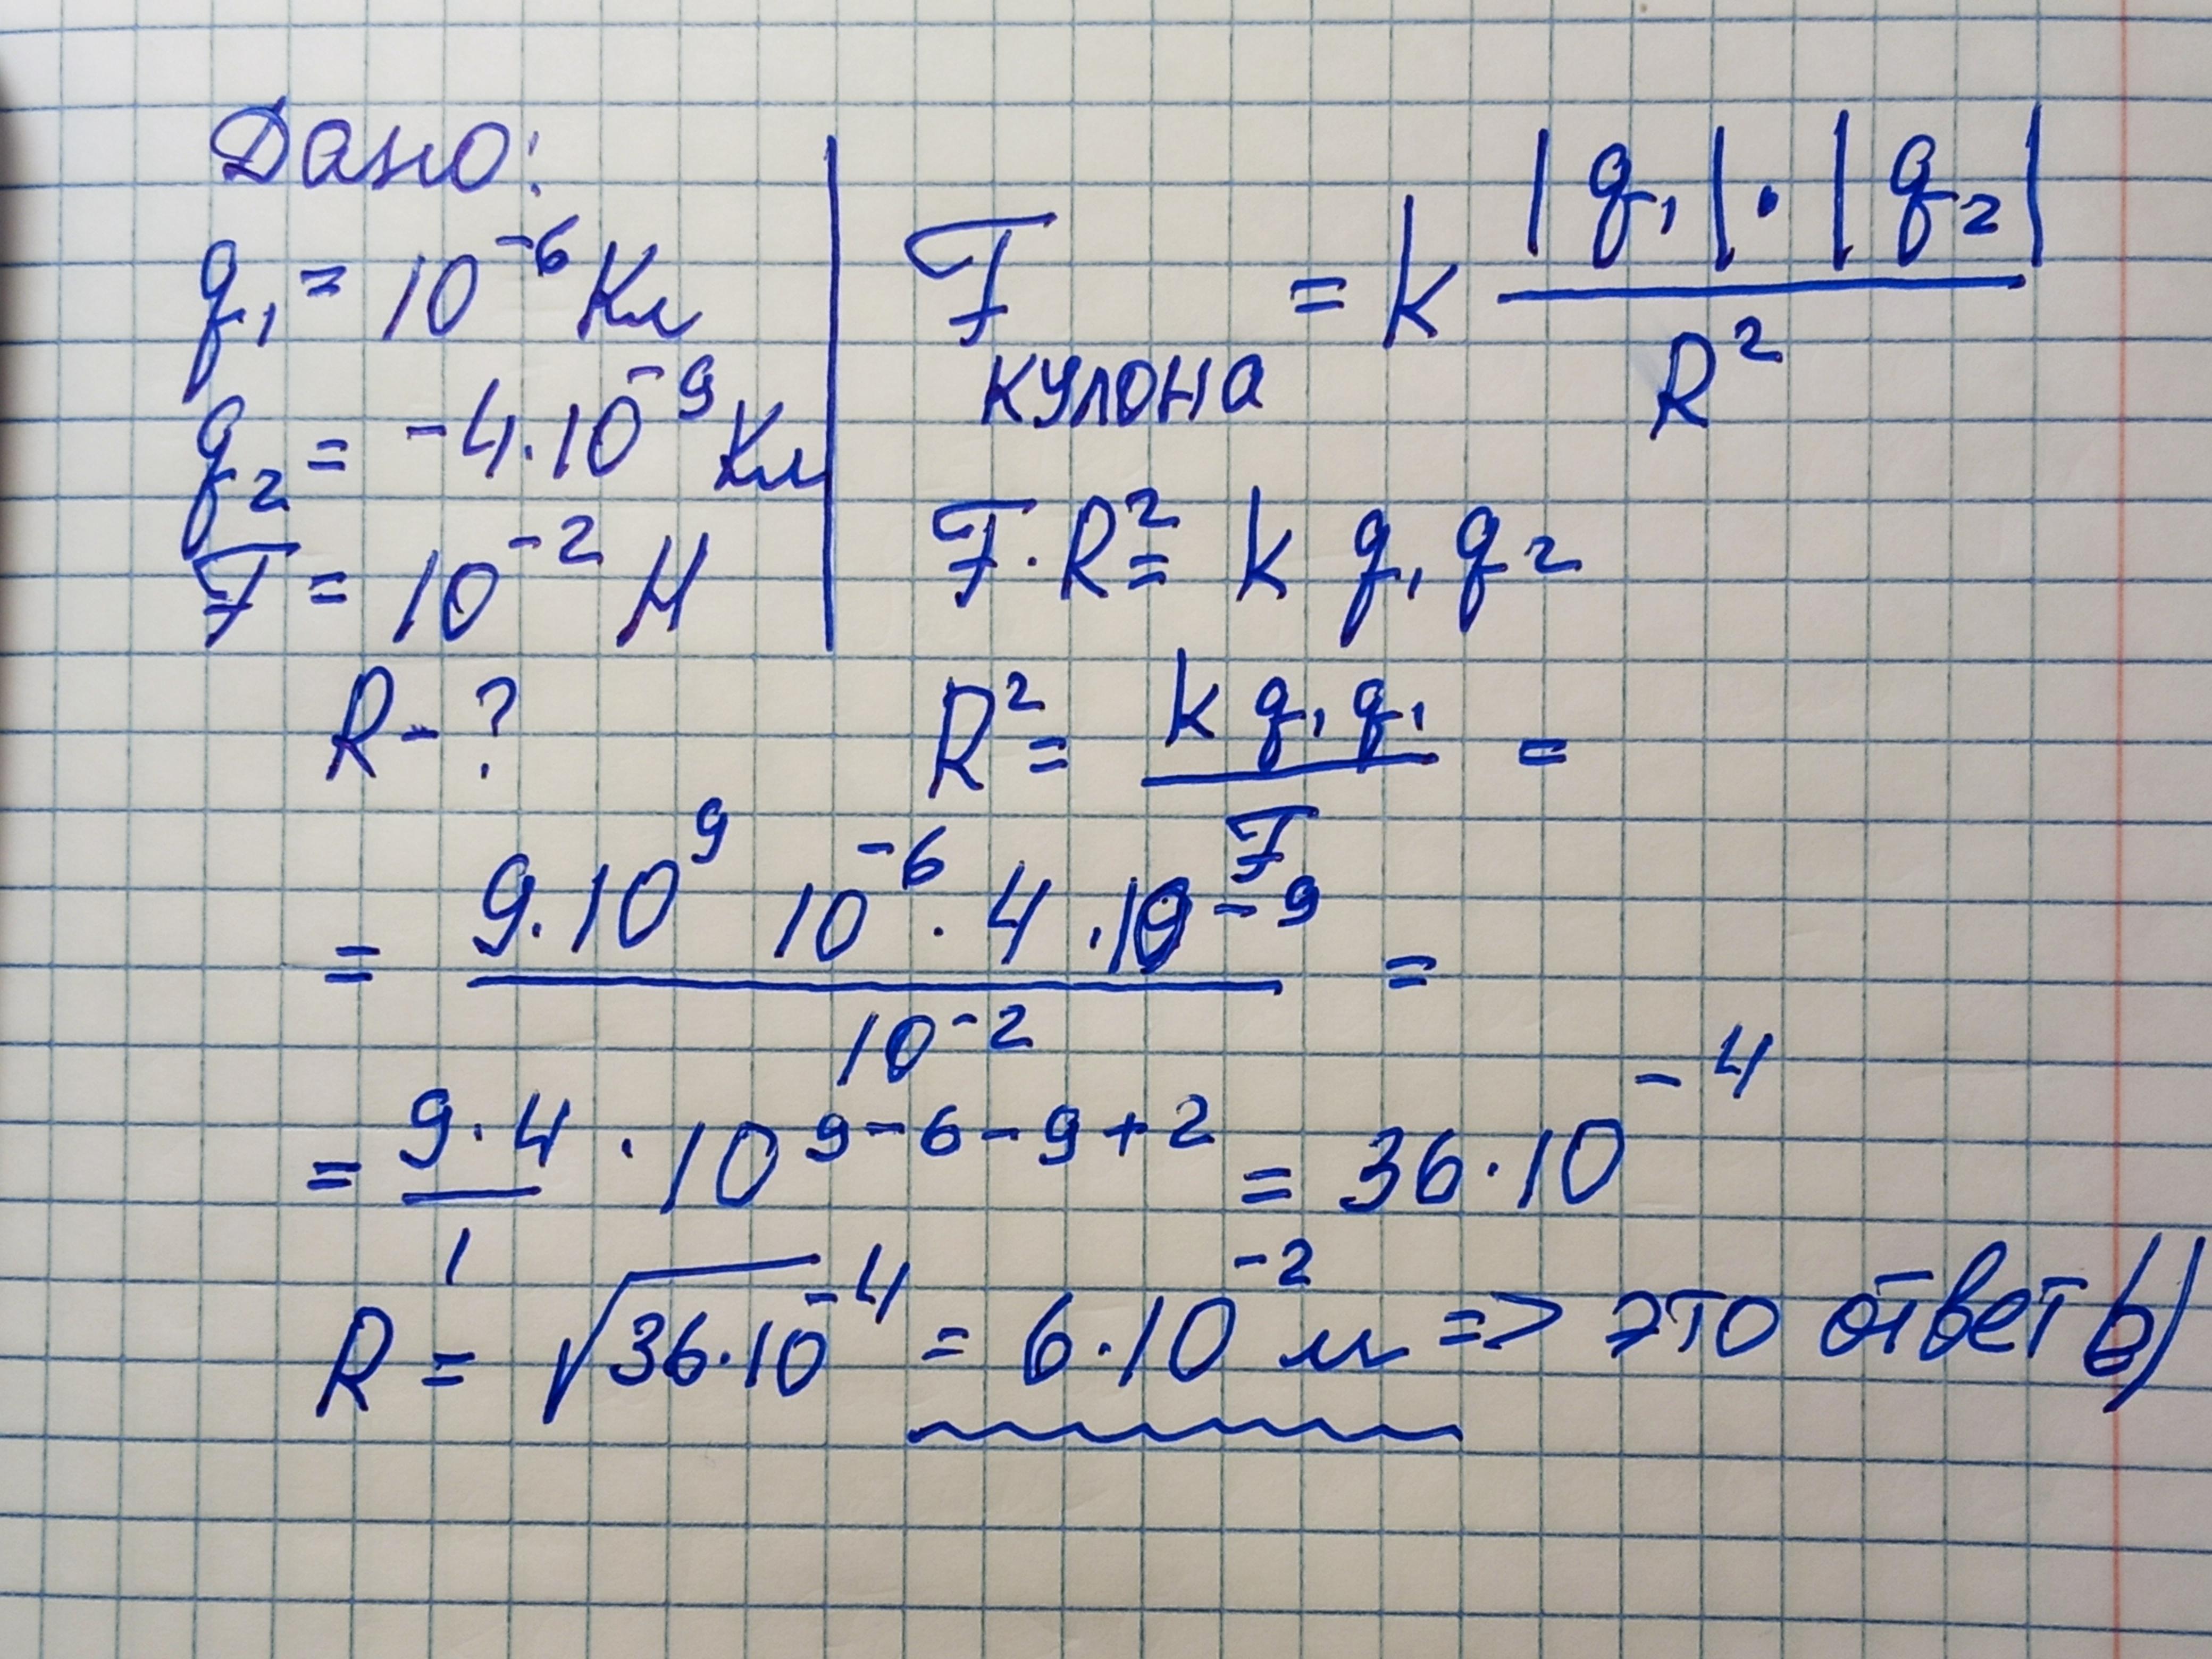 Дано:
q₁ = 10⁻⁶ Кл
q₂ = -4·10⁻⁹ Кл
F = 10⁻² Н
R - ?
F кулона = k |q₁|·|q₂| / R²
F·R² = k q₁ q₂
R² = k q₁ q₁ / F =
= 9·10⁹ 10⁻⁶ · 4 · 10⁻⁹ / 10⁻² =
= 9·4 / 1 · 10⁹⁻⁶⁻⁹⁺² = 36·10⁻⁴
R = √36·10⁻⁴ = 6·10⁻² м => это ответ b)